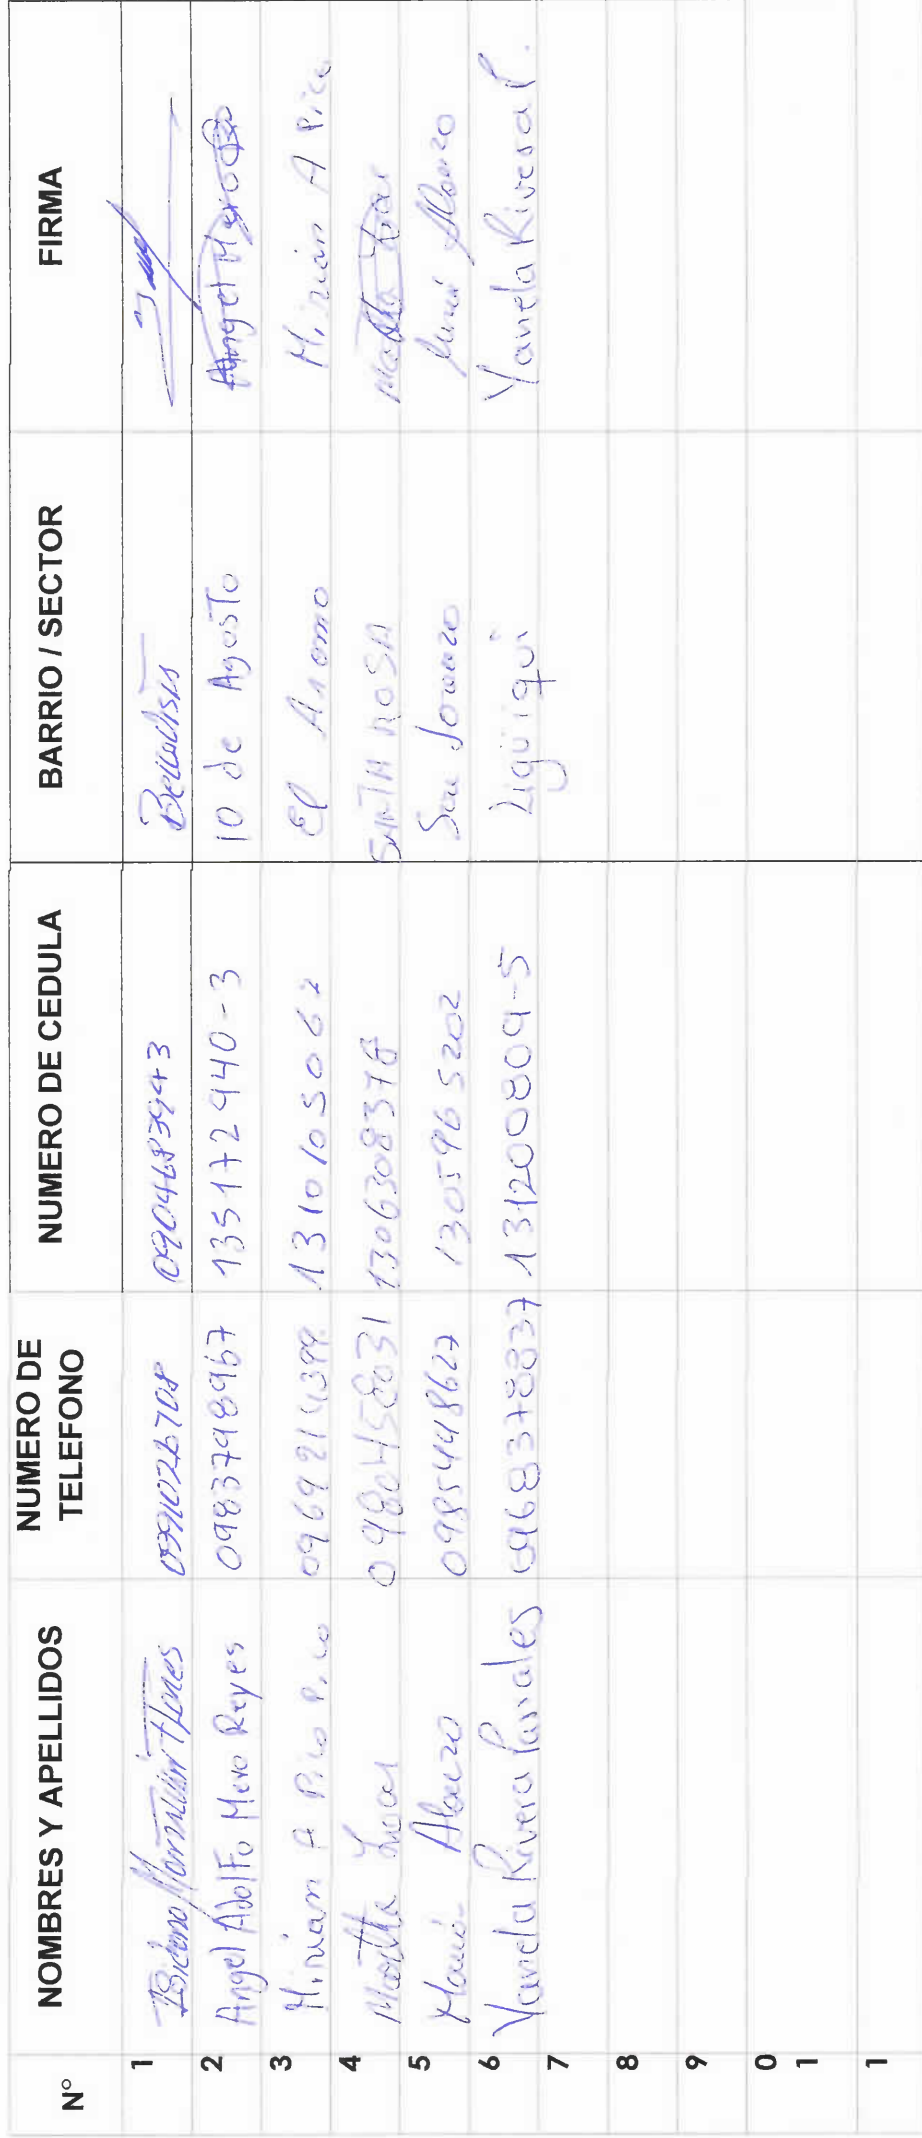 N° NOMBRES Y APELLIDOS NUMERO DE TELEFONO NUMERO DE CEDULA BARRIO / SECTOR FIRMA
1 0991026708 0904683943
2 Angel Adolfo Mero Reyes 0983798967 135172940-3 10 de Agosto Angel Mero
3 Miriam A Pico Pico 0969214399 1310105062 El Aromo Mirian A Pico
4 Martha 0980458031 1306308378 SANTA ROSA Martha
5 Alonzo 0985448627 1305965202 San Lorenzo Alonzo
6 Yanela Rivera Parrales 0968378837 131200809-5 Ligüiqui Yanela Rivera P.
7
8
9
0
1
1